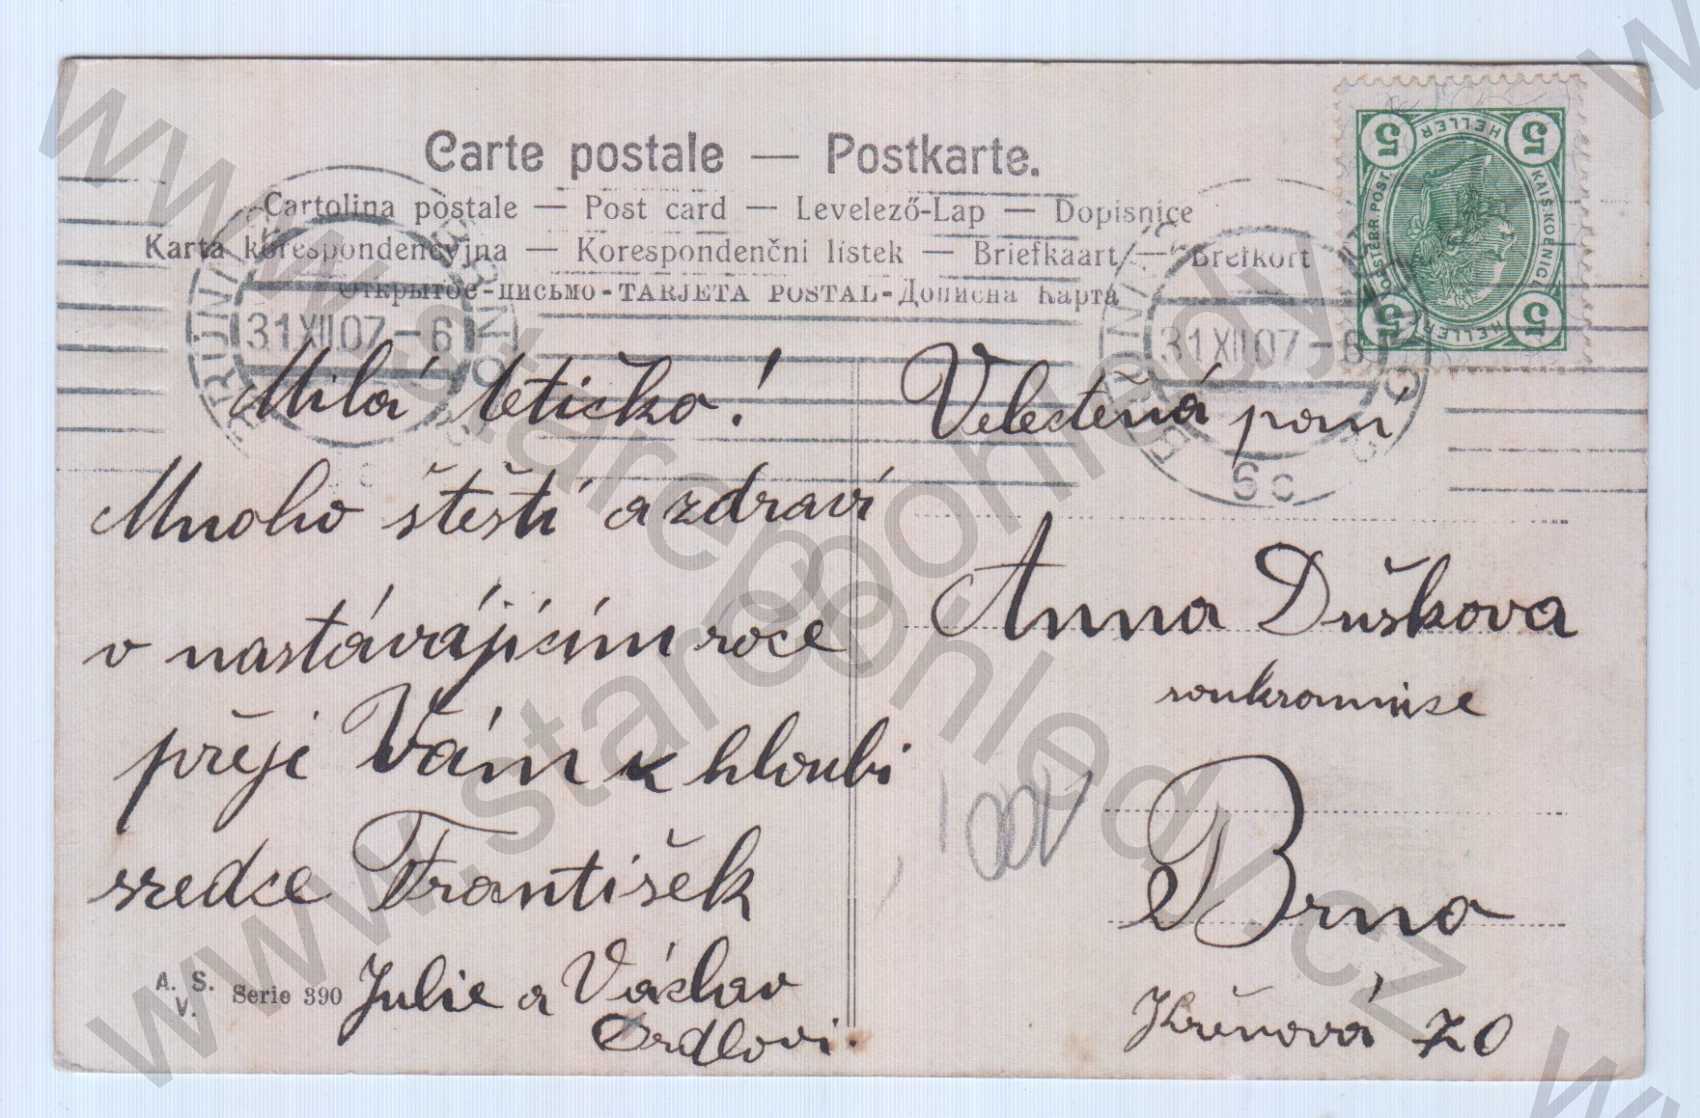 Carte postale — Postkarte.
Cartolina postale — Post card — Levelező-Lap — Dopisnice
Karta korespondencyjna — Korespondenční lístek — Briefkaart — Brefkort
Открытое-письмо-TARJETA POSTAL-Дописна Карта
31 XII 07 - 6
31 XII 07 - 6
6c
5 HELLER 5
KAIS. KOENIGL. OESTERR. POST
5 HELLER 5
Milá tetičko!
Mnoho štěstí a zdraví
v nastávájícím roce
přeji Vám z hloubi
srdce František
Julie a Václav
Ordlovi.
A. S. V. Serie 390
Velectěná paní
Anna Duškova
soukromnice
Brno
Křenová 70
www.starepohledy.cz
www.starepohledy.cz